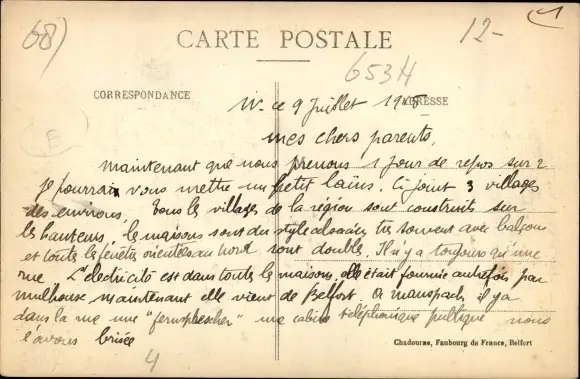 68)
12-
CARTE POSTALE
653H
CORRESPONDANCE
ADRESSE
E
W. ce 9 Juillet 1915
mes chers parents,
maintenant que nous prenons 1 jour de repos sur 2
je pourrais vous mettre un petit laïus. Ci joint 3 villages
des environs. Tous les villages de la région sont construits sur
les hauteurs, les maisons sont du style alsacien très souvent avec balcons
et toutes les fenêtres orientées au nord sont doubles. Il n'y a toujours qu'une
rue L'électricité est dans toutes les maisons, elle était fournie autrefois par
mulhouse, maintenant elle vient de Belfort. A manspach il y a
dans la rue une "fernsprecher" une cabine téléphonique publique nous
l'avons brisée
4
Chadourne, Faubourg de France, Belfort